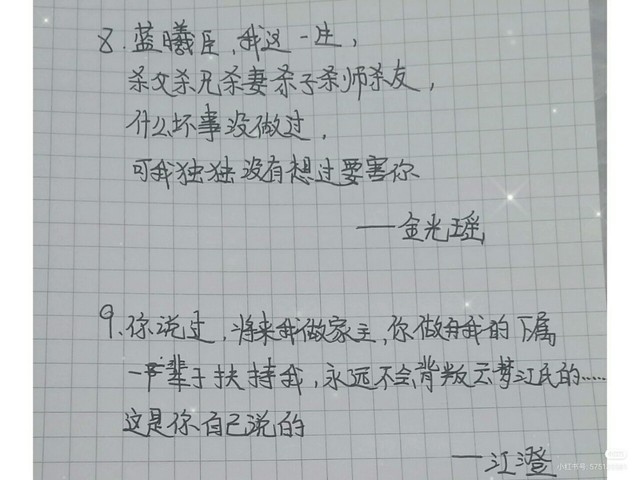 8. 蓝曦臣，我这一生，
杀父杀兄杀妻杀子杀师杀友，
什么坏事没做过，
可我独独没有想过要害你
——金光瑶
9. 你说过，将来我做家主，你做我的下属
一辈子扶持我，永远不会背叛云梦江氏的……
这是你自己说的
—江澄